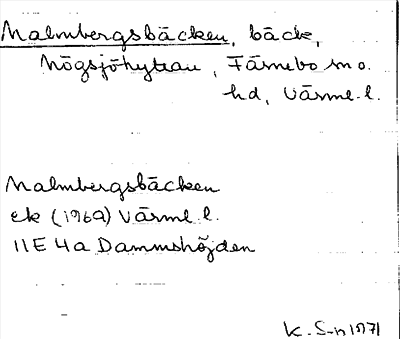 Malmbergsbäcken, bäck,
Högsjöhyttan, Färnebo sn o.
hd, Värml. l.
Malmbergsbäcken
ek (1969) Värml. l.
11E 4a Dammshöjden
K. S-n 1971